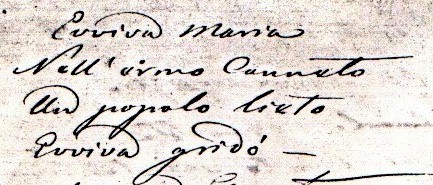 Evviva Maria
Nell'ermo Canneto
Un popolo lieto
Evviva gridó —